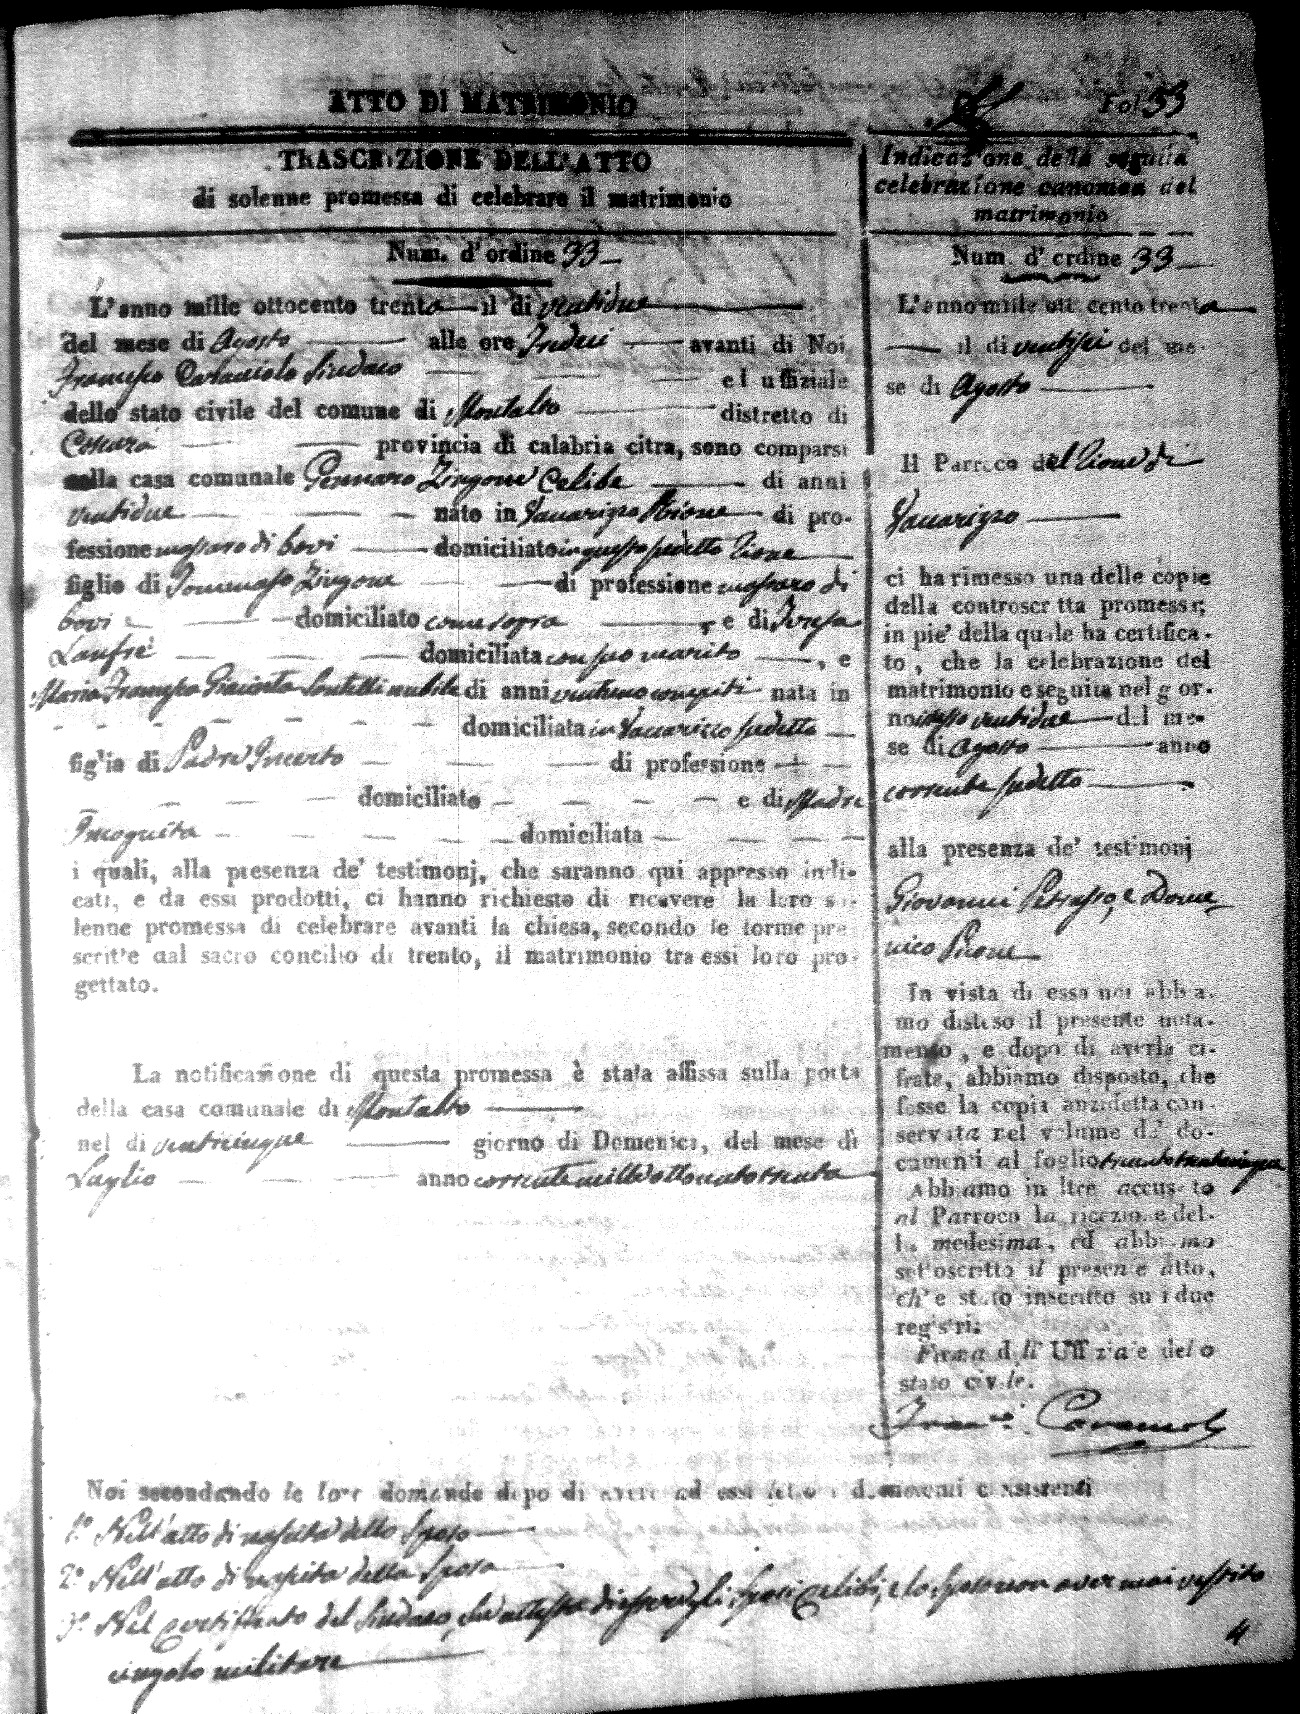 ATTO DI MATRIMONIO
Fol. 33
TRASCRIZIONE DELL'ATTO
di solenne promessa di celebrare il matrimonio
Num. d'ordine 33
L'anno mille ottocento trenta il di ventidue
del mese di Agosto alle ore Tredici avanti di Noi
Francesco Sindaco ed uffiziale
dello stato civile del comune di Montalto distretto di
Cosenza provincia di calabria citra, sono comparsi
nella casa comunale Gennaro Zingone Celibe di anni
ventidue nato in Vaccarizzo Rione di pro-
fessione massaro di bovi domiciliato in questo sudetto Rione
figlio di Tommaso Zingone di professione massaro di
bovi domiciliato come sopra, e di Teresa
Lanfrè domiciliata con suo marito, e
Maria Francesca Giacinta nubile di anni ventuno compiti nata in
domiciliata in Vaccarizzo sudetto
figlia di Padre Incerto di professione
domiciliato e di Madre
Incognita domiciliata
i quali, alla presenza de' testimonj, che saranno qui appresso indi-
cati, e da essi prodotti, ci hanno richiesto di ricevere la loro so-
lenne promessa di celebrare avanti la chiesa, secondo le forme pre-
scritte dal sacro concilio di trento, il matrimonio tra essi loro pro-
gettato.
La notificazione di questa promessa è stata affissa sulla porta
della casa comunale di Montalto
nel di venticinque giorno di Domenica, del mese di
Luglio anno corrente mille ottocento trenta
Indicazione della seguita
celebrazione canonica del
matrimonio
Num. d'ordine 33
L'anno mille ott cento trenta
il di ventisei del me-
se di Agosto
Il Parroco del Rione di
Vaccarizzo
ci ha rimesso una delle copie
della controscritta promessa,
in pie' della quale ha certifica-
to, che la celebrazione del
matrimonio e seguita nel gior-
no istesso ventidue del me-
se di Agosto anno
corrente sudetto
alla presenza de' testimonj
Giovanni Petrasso, e Dome
nico Pirone
In vista di essa noi abbia-
mo disteso il presente nota-
mento, e dopo di averla ci-
frata, abbiamo disposto, che
fosse la copia anzidetta con-
servata nel volume de' do-
cumenti al foglio
Abbiamo in ltre accusato
al Parroco la ricezione del-
la medesima, ed abbiamo
sottoscritto il presente atto,
ch' e stato inscritto su i due
registri.
Firma dell' Uffiziale dello
stato civile.
Noi secondando le loro domande dopo di avere ad essi letto i documenti consistenti
1º Nell'atto di nascita dello Sposo
2º Nell'atto di nascita della Sposa
3º Nel certificato del Sindaco, che attesta di essere gli sposi celibi, e lo Sposo non aver mai vestito
cingolo militare